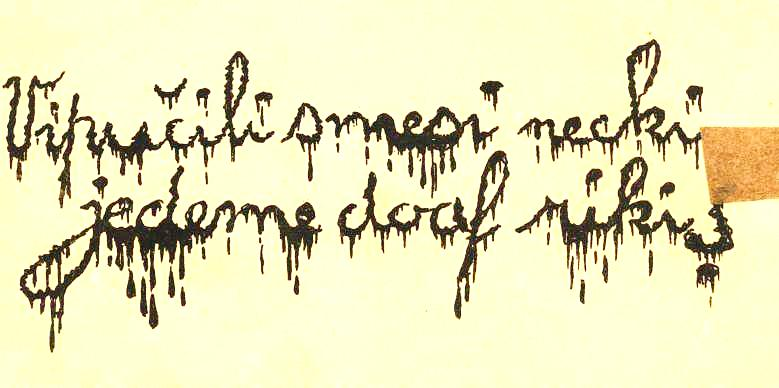 Vipučili smesi necki
jedeme doaf riki!